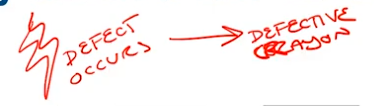 DEFECT
OCCURS
DEFECTIVE
CRAYON